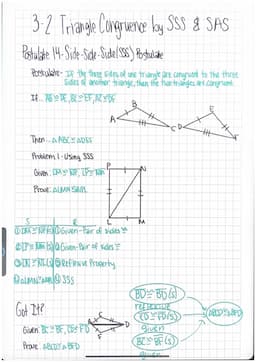 3-2 Triangle Congruence by SSS & SAS
Postulate 14-Side-Side-Side (SSS) Postulate
Postulate- If the three sides of one triangle are congruent to the three
sides of another triangle, then the two triangles are congruent
If
B
E
A
C
D
F
Then
Problem 1- Using SSS
P
N
Given
Prove:
L
M
S
R
① Given-Pair of sides ≅
② Given-Pair of sides ≅
③ Reflexive Property
④ SSS
Got It?
Given BC ≅ BF, CD ≅ FD
Prove: △BCD ≅ △BFD
D
F
BD ≅ BD (S)
reflexive
CD ≅ FD (S)
given
BC ≅ BF (S)
given
△BCD ≅ △BFD